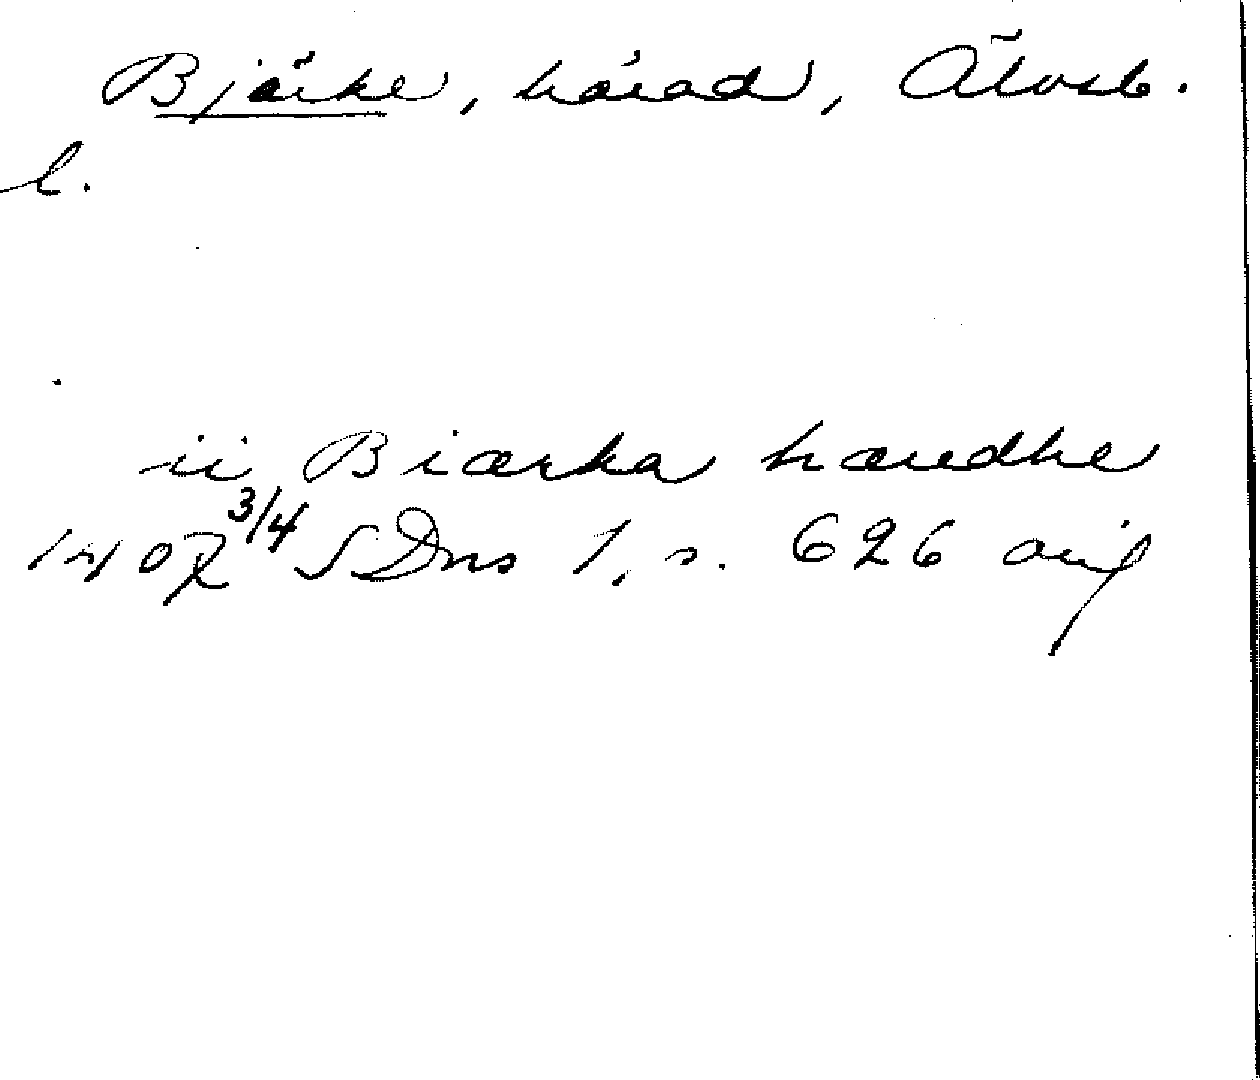 Bjärke, härad, Älvsb.
l.
ii Biærka hæredhe
1407 3/4 SDns 1, s. 626 orig